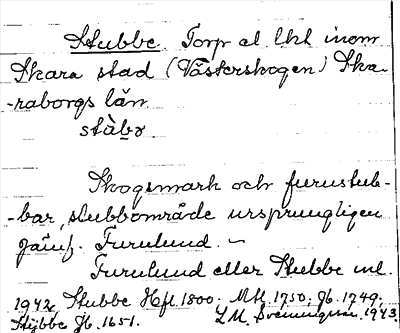 Stubbe. Torp el lht inom
Skara stad (Västerskogen) Ska-
-raborgs län
stàbə
Skogsmark och furustub-
-bar, stubbområde ursprungligen
jämf. Furulund. –
Furulund eller Stubbe enl.
1942, Stubbe Hfl. 1800; Ml. 1750; Jb. 1749;
Stubbe Jb. 1651. L M Svenungsson 1943.